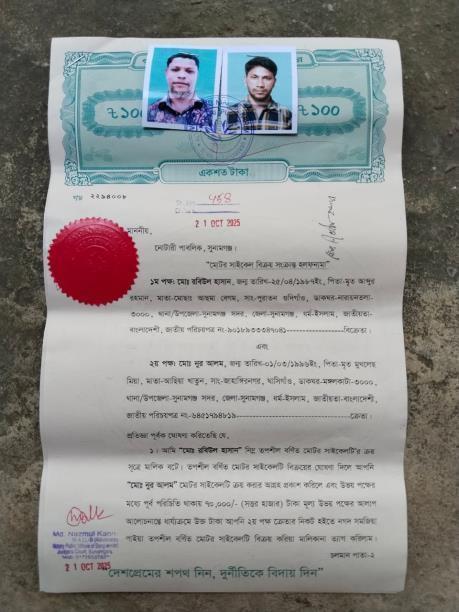 ৳১০০
৳১০০
একশত টাকা
২২৯৪০০৮
458
21 OCT 2025
মাননীয়,
নোটারী পাবলিক, সুনামগঞ্জ।
"মোটর সাইকেল বিক্রয় সংক্রান্ত হলফনামা"
১ম পক্ষ: মোঃ রবিউল হাসান, জন্ম তারিখ-২৫/০৪/১৯৮৭ইং, পিতা-মৃত আব্দুর
রহমান, মাতা-মোছাঃ আছমা বেগম, সাং-পুরাতন গুদিগাঁও, ডাকঘর-নারায়নতলা-
৩০০০, থানা/উপজেলা-সুনামগঞ্জ সদর, জেলা-সুনামগঞ্জ, ধর্ম-ইসলাম, জাতীয়তা-
বাংলাদেশী, জাতীয় পরিচয়পত্র নং-৯০১৮৯৩৩৩৪৭০৪১-----------------বিক্রেতা।
এবং
২য় পক্ষ: মোঃ নুর আলম, জন্ম তারিখ-০১/০৩/১৯৯৬ইং, পিতা-মৃত মুখলেছ
মিয়া, মাতা-আছিয়া খাতুন, সাং-জাহাঙ্গিরনগর, খাসিগাঁও, ডাকঘর-মঙ্গলকাটা-৩০০০,
থানা/উপজেলা-সুনামগঞ্জ সদর, জেলা-সুনামগঞ্জ, ধর্ম-ইসলাম, জাতীয়তা-বাংলাদেশী,
জাতীয় পরিচয়পত্র নং-৬৪৫১৭৯৪৮১৯-----------------------------ক্রেতা।
প্রতিজ্ঞা পূর্বক ঘোষণা করিতেছি যে,
১। আমি "মোঃ রবিউল হাসান" নিম্ন তপশীল বর্ণিত মোটর সাইকেলটি'র ক্রয়
সূত্রে মালিক বটে। তপশীল বর্ণিত মোটর সাইকেলটি বিক্রয়ের ঘোষণা দিলে আপনি
"মোঃ নুর আলম" মোটর সাইকেলটি ক্রয় করার আগ্রহ প্রকাশ করিলে এবং উভয় পক্ষের
মধ্যে পূর্ব পরিচিতি থাকায় ৭০,০০০/- (সত্তর হাজার) টাকা মূল্য উভয় পক্ষের আলাপ
আলোচনান্তে ধার্য্যক্রমে উক্ত টাকা আপনি ২য় পক্ষ ক্রেতার নিকট হইতে নগদ সমজিয়া
পাইয়া তপশীল বর্ণিত মোটর সাইকেল বিক্রয় করিয়া মালিকানা ত্যাগ করিলাম।
চলমান পাতা-২
21 OCT 2025
"দেশপ্রেমের শপথ নিন, দুর্নীতিকে বিদায় দিন"